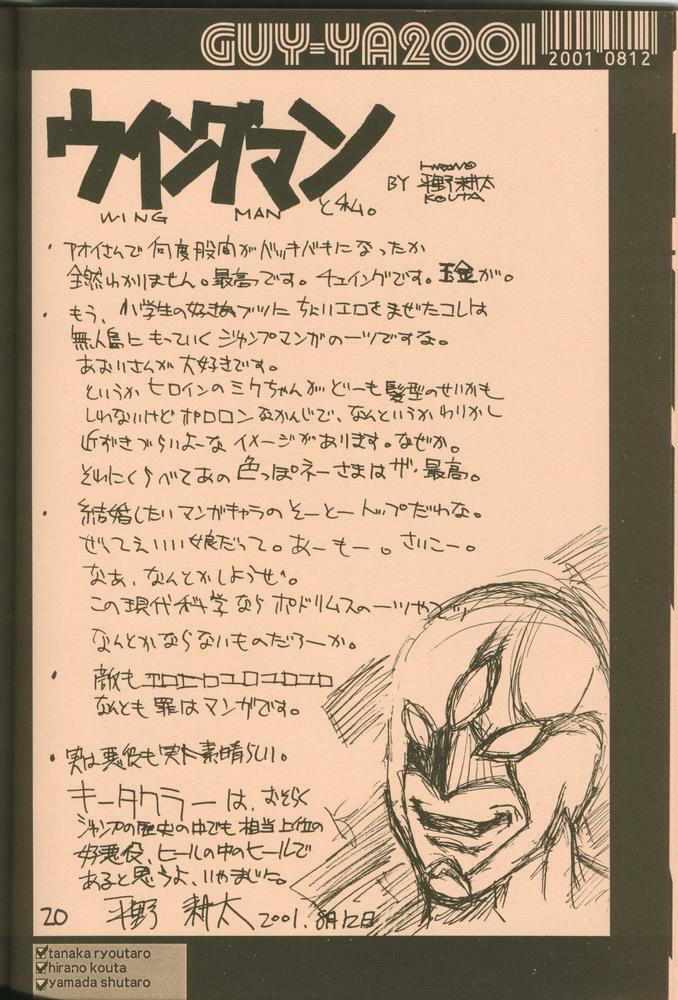 GUY-YA2001
2001 0812
ウイングマン
WING MAN と私。
BY 平野耕太
HIRANO
KOUTA
・アオイさんで何度股間がバッキバキになったか
全然わかりません。最高です。チュイングです。玉金が。
・もう、小学生の好きなブツにちょいエロをまぜたコレは
無人島にもっていくジャンプマンガの一ツですな。
あおいさんが大好きです。
というかヒロインのミクちゃんがどーも髪型のせいかも
しれないけどポロロンなかんじで、なんというかわりかし
近づきづらいよーなイメージがあります。なぜか。
それにくらべてあの色っぽネーさまはザ・最高。
・結婚したいマンガキャラのそーとートップだわな。
ぜってえいい娘だって。あーもー。さいこー。
なあ、なんとかしようぜ。
この現代科学ならポドリムスの一ツや二ツ
なんとかならないものだろーか。
・敵もエロエロユロユロユロ
なんとも罪はマンガです。
・実は悪役も実に素晴らしい。
キータクラーは、おそらく
ジャンプの歴史の中でも相当上位の
好悪役、ヒールの中のヒールで
あると思うよ、いやまじで。
平野 耕太 2001.8月12日
20
tanaka ryoutaro
hirano kouta
yamada shutaro